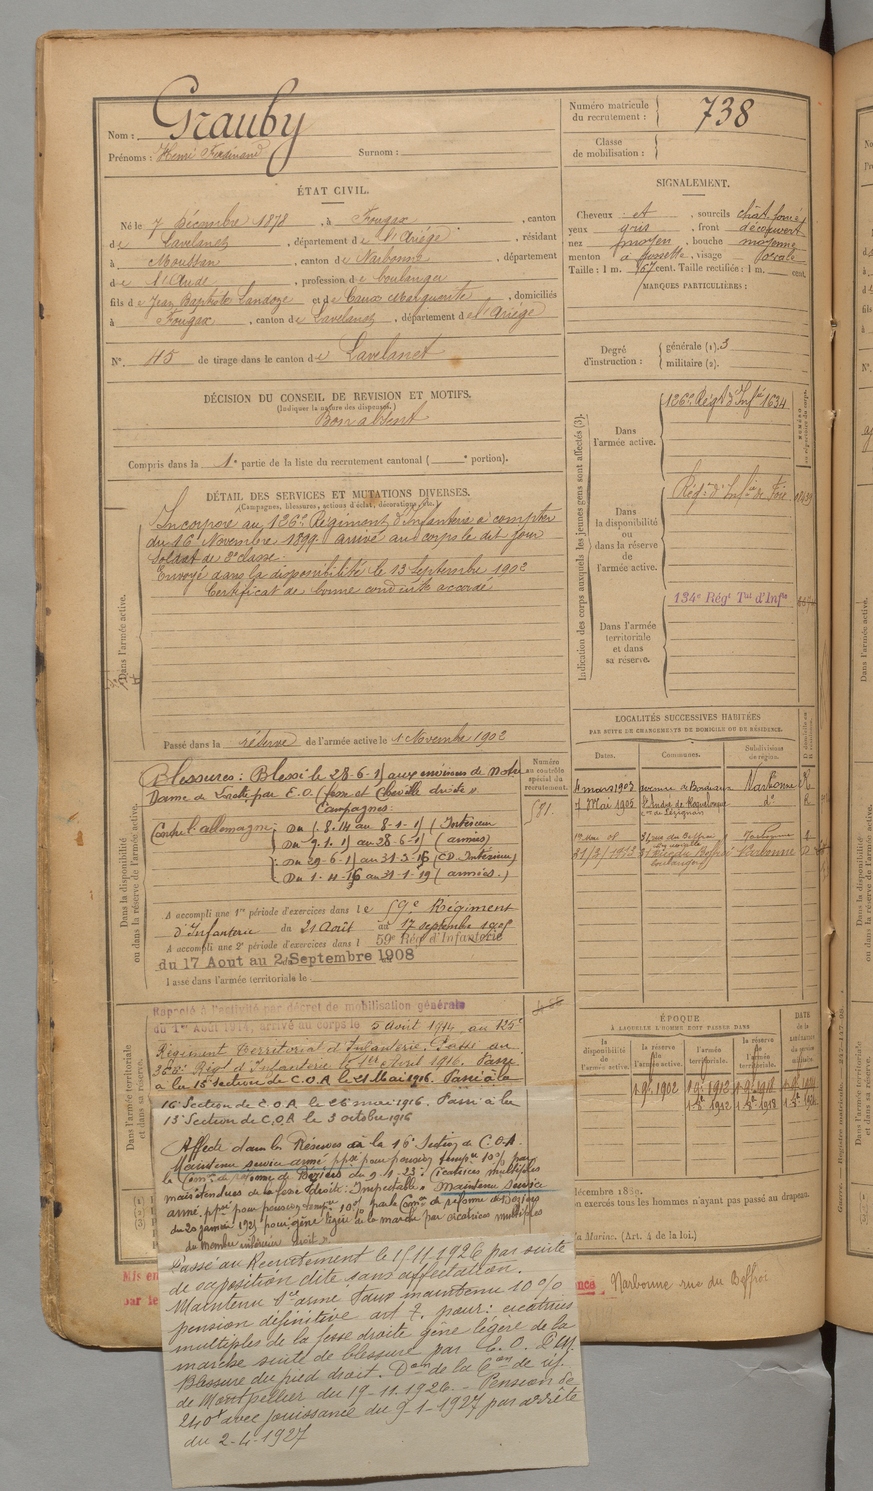 Nom : Grauby
Prénoms : Henri Ferdinand Surnom :
Numéro matricule du recrutement : 738
Classe de mobilisation :
ÉTAT CIVIL.
Né le 7 Décembre 1878, à Fougax, canton
de Lavelanet, département de l'Ariège, résidant
à Moussan, canton de Narbonne, département
de l'Aude, profession de boulanger
fils de Jean Baptiste Landoze et de Caux Marguerite, domiciliés
à Fougax, canton de Lavelanet, département de l'Ariège
N° 45 de tirage dans le canton de Lavelanet
SIGNALEMENT.
Cheveux et, sourcils chât foncé
yeux gris, front découvert
nez moyen, bouche moyenne
menton à fossette, visage ovale
Taille : 1 m. 67 cent. Taille rectifiée : 1 m. cent.
MARQUES PARTICULIÈRES :
DÉCISION DU CONSEIL DE REVISION ET MOTIFS.
(Indiquer la nature des dispenses.)
Bon absent
Compris dans la 1e partie de la liste du recrutement cantonal ( e portion).
Degré d'instruction : générale (1). 3
militaire (2).
DÉTAIL DES SERVICES ET MUTATIONS DIVERSES.
(Campagnes, blessures, actions d'éclat, décorations, etc.)
Dans l'armée active.
Incorporé au 126e Régiment d'Infanterie à compter
du 16 Novembre 1899 arrivé au corps le dit jour
Soldat de 2e classe.
Envoyé dans la disponibilité le 13 Septembre 1902
Certificat de bonne conduite accordé
Passé dans la réserve de l'armée active le 1 Novembre 1902
Indication des corps auxquels les jeunes gens sont affectés (3).
Dans l'armée active.
126e Régt d'Infie 1634
Dans la disponibilité ou dans la réserve de l'armée active.
Régt d'Infie de Foix
Dans l'armée territoriale et dans sa réserve.
134e Régt Tal d'Infie
LOCALITÉS SUCCESSIVES HABITÉES
PAR SUITE DE CHANGEMENTS DE DOMICILE OU DE RÉSIDENCE.
Dates. Communes. Subdivisions de région.
4 mars 1903 avenue de Bordeaux Narbonne R
7 Mai 1905 cne de Lézignan do R
21/3/1913 boulanger Narbonne D
Dans la disponibilité ou dans la réserve de l'armée active.
Numéro au contrôle spécial du recrutement.
581.
Blessures : Blessé le 28-6-15 aux environs de Notre
Dame de Lorette par E.O. (fesse et cheville droite »
Campagnes :
Contre l'allemagne : Du 5.8.14 au 8-1-15 (Intérieur
Du 9.1.15 au 28-6-15 (armées)
Du 29-6-15 au 31-3-16 (CD. Intérieur)
Du 1-4-16 au 31-1-19 (armées.)
A accompli une 1re période d'exercices dans le 59e Régiment
d'Infanterie du 21 Août au 17 septembre 1905
A accompli une 2e période d'exercices dans l 59e Rég d'Infanterie
du 17 Aout au 2 Septembre 1908
Passé dans l'armée territoriale le
Dans l'armée territoriale et dans sa réserve.
Rappelé à l'activité par décret de mobilisation générale
du 1er Août 1914, arrivé au corps le 5 août 1914, au 125e
Régiment Territorial d'Infanterie. Passé au
Régt d'Infanterie le 1er Avril 1916. Passé
à la 15e Section de C.O.A. le 21 Mai 1916. Passé à la
16e Section de C.O.A le 26 mai 1916. Passé à la
15e Section de C.O.A le 3 octobre 1916
Affecté dans les Réserves à la 16e Section de C.O.A.
Maintenu service armé ppsé pour pension tempre 10% par
la Comon de réforme de Béziers du 9-1-23 : cicatrices multiples
mais étendues de la fesse droite : Impotable. Maintenu service
armé, ppsé pour pension tempre 10% par la Comon de réforme de Béziers
du 20 janvier 1925 pour gêne légère de la marche par cicatrices multiples
du membre inférieur droit »
Passé au Recrutement le 15.11.1926 par suite
de disposition dite sans affectation.
Maintenu Sce armé Taux maintenu 10 %
pension définitive art 7. pour : cicatrices
multiples de la fesse droite gêne légère de la
marche suite de blessure par E.O. 2em.
Blessure du pied droit. Don de la Con de réf.
de Montpellier du 19-11-1926. Pension de
240f avec jouissance du 9-1-1927 par arrêté
du 2-4-1927
ÉPOQUE
À LAQUELLE L'HOMME DOIT PASSER DANS
la disponibilité de l'armée active. la réserve de l'armée active. l'armée territoriale. la réserve de l'armée territoriale.
1 9e 1902 1 9e 1912 1 9e 1918
décembre 1889.
exercés tous les hommes n'ayant pas passé au drapeau.
la Marine. (Art. 4 de la loi.)
Mis en
par le
Narbonne rue du Beffroi